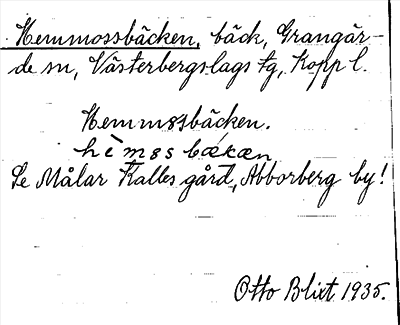 Hemmossbäcken, bäck, Grangär-
de sn, Västerbergslags tg, Kopp l.
Hemmosbäcken.
Se Målar Kalles gård, Abborberg by!
Otto Blixt 1935.